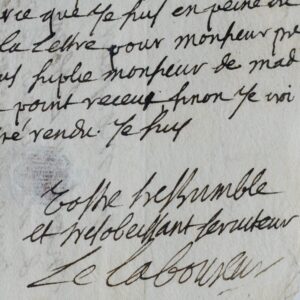 rce que Je suis en peine
la Lettre pour monsieur
us suplie monsieur de mad
point receue sinon Je
rendu. Je suis
Vostre tres humble
et tresobeissant serviteur
Le Laboureur